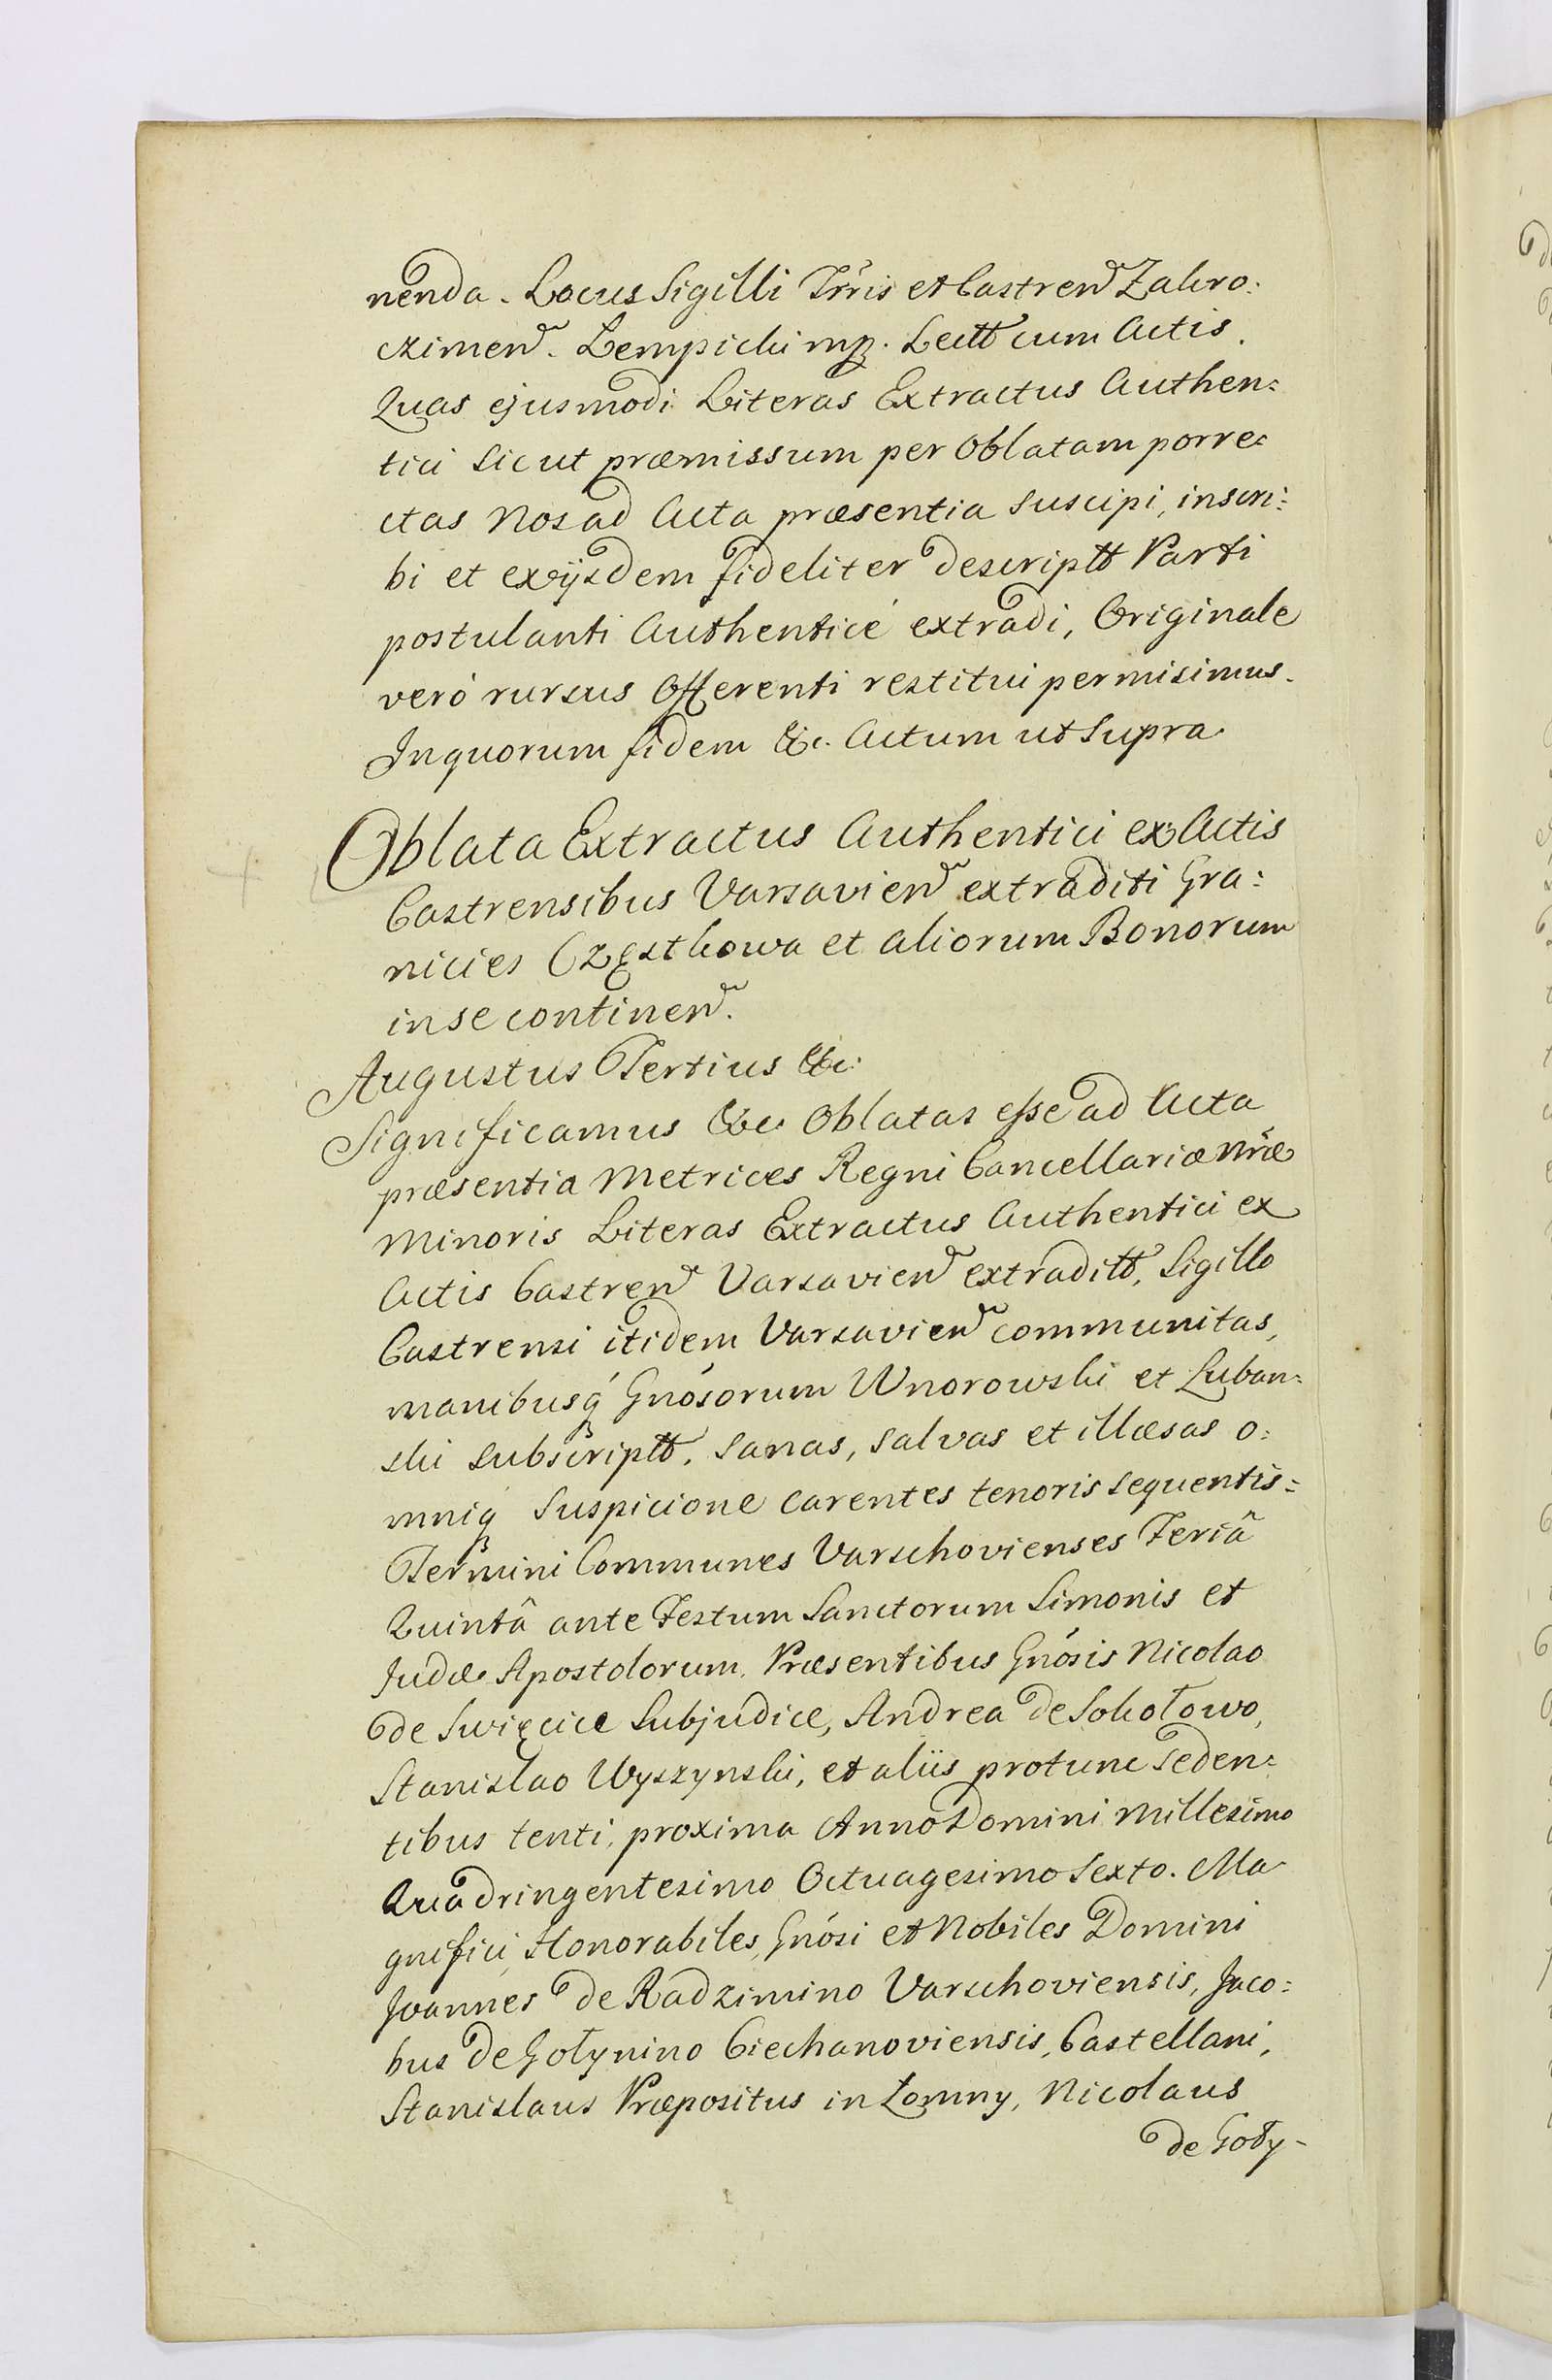 nenda. Locus Sigilli Trris et Castren̄ Zakro:
czimen̄. Lempicki mp. Lectt cum Actis.
Quas ejusmodi Literas Extractus Authen:
tici sicut præmissum per Oblatam porre:
ctas Nos ad Acta præsentia suscipi, inscri:
bi et exijsdem fideliter descriptt Parti
postulanti Authenticé extradi, Originale
veró rursus Offerenti restitui permisimus.
In quorum fidem &c. Actum ut supra
Oblata Extractus Authentici ex Actis
Castrensibus Varsavien̄ extraditi Gra:
nicies Częstkowa et aliorum Bonorum
in se continen̄.
Augustus Tertius &c:
Significamus &c: Oblatas esse ad Acta
præsentia Metrices Regni Cancellariæ Nræ
Minoris Literas Extractus Authentici ex
Actis Castren̄ Varsavien̄ extraditt, Sigillo
Castrensi itidem Varsavien̄ communitas,
manibusq́ Gnósorum Wnorowski et Luban:
ski subscriptt, sanas, salvas et illæsas o:
mniq́ Suspicione carentes tenoris sequentis:
Termini Communes Varschovienses Feriâ
Quintâ ante Festum Sanctorum Simonis et
Judæ Apostolorum. Præsentibus Gnósis Nicolao
de Swięcice Subjudice, Andrea de Sokołowo,
Stanislao Wyszynski, et aliis protunc seden:
tibus tenti, proxima Anno Domini Millesimo
Quadringentesimo Octuagesimo Sexto. Ma
gnifici, Honorabiles, Gnósi et Nobiles Domini
Joannes de Radzimino Varschoviensis, Jaco:
bus de Gołynino Ciechanoviensis, Castellani,
Stanislaus Præpositus in Łomny, Nicolaus
de Goły-